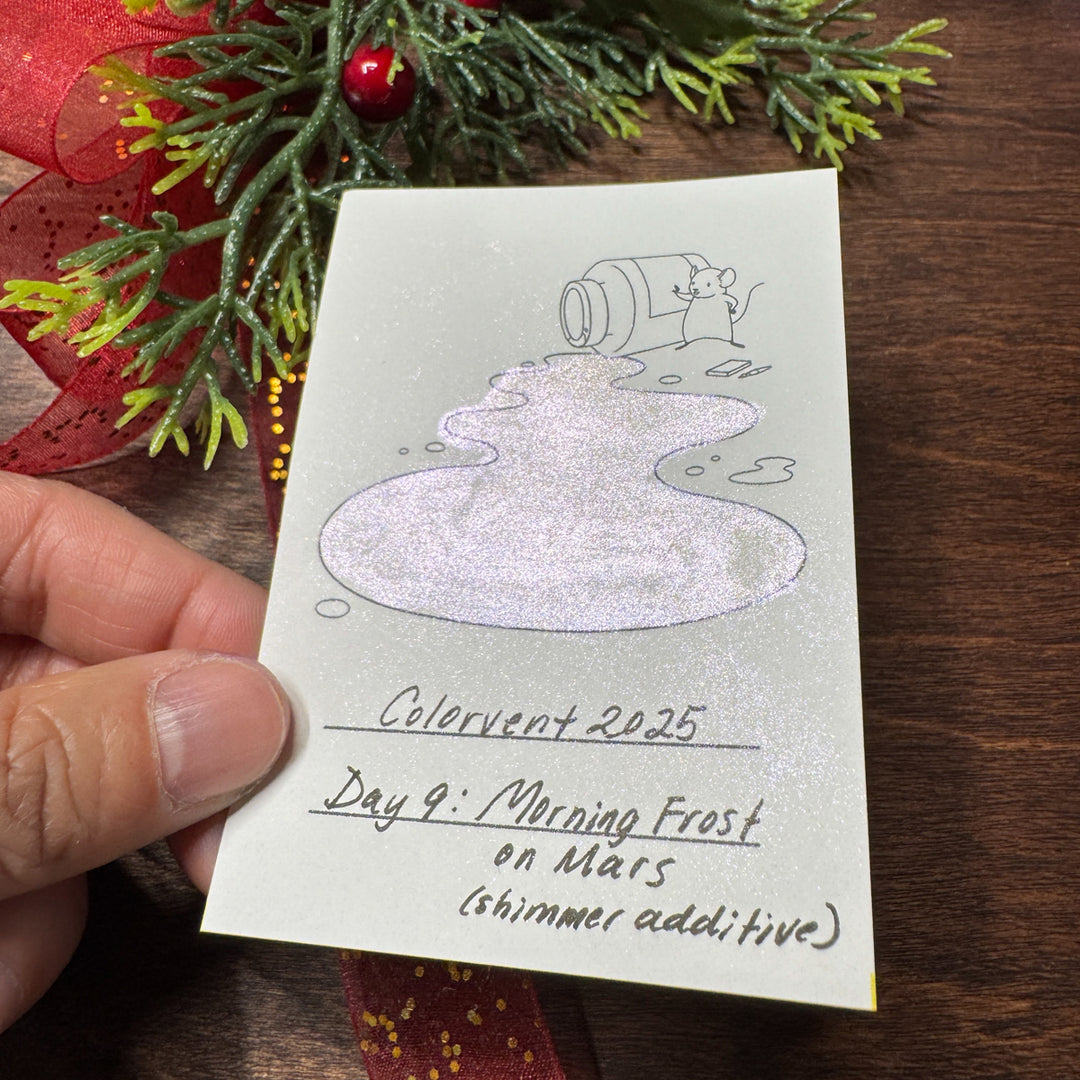 Colorvent 2025
Day 9: Morning Frost
on Mars
(shimmer additive)